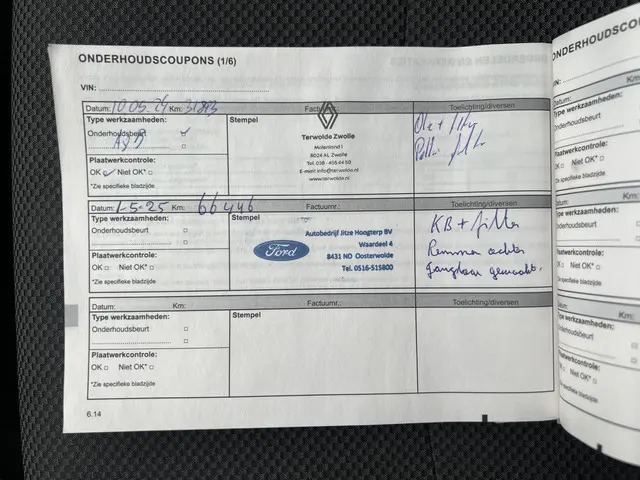 ONDERHOUDSCOUPONS (1/6)
VIN:
Datum: 10 05 24 Km: 31893 Factuurnr.: Toelichting/diversen
Type werkzaamheden: Stempel
Onderhoudsbeurt
Plaatwerkcontrole:
OK Niet OK*
*Zie specifieke bladzijde
Terwolde Zwolle
8024 AL Zwolle
Tel. 038 - 455 44 50
E-mail info@terwolde.nl
www.terwolde.nl
Olie + filter
Datum: 1-5-25 Km: 66446 Factuurnr.: Toelichting/diversen
Type werkzaamheden: Stempel
Onderhoudsbeurt
Plaatwerkcontrole:
OK Niet OK*
*Zie specifieke bladzijde
Autobedrijf Jitze Hoogterp BV
Waardeel 4
Ford
8431 NO Oosterwolde
Tel. 0516-515800
KB + filter
Remmen achter
gangbaar gemaakt.
Datum: Km: Factuurnr.: Toelichting/diversen
Type werkzaamheden: Stempel
Onderhoudsbeurt
Plaatwerkcontrole:
OK Niet OK*
*Zie specifieke bladzijde
6.14
ONDERHOUDSCO
VIN:
Datum: Km:
Type werkzaamheden:
Onderhoudsbeurt
Plaatwerkcontrole:
OK Niet OK*
*Zie specifieke bladzijde
Datum: Km:
Type werkzaamheden:
Onderhoudsbeurt
Plaatwerkcontrole:
OK Niet OK*
*Zie specifieke bladzijde
Datum: Km:
Type werkzaamheden:
Onderhoudsbeurt
Plaatwerkcontrole:
OK Niet OK*
*Zie specifieke bladzijde